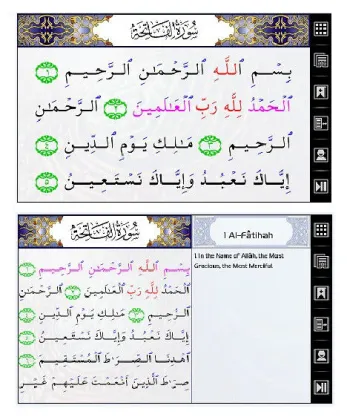 سُورَةُ الْفَاتِحَةِ
بِسْمِ اللَّهِ الرَّحْمَـٰنِ الرَّحِيمِ ١
الْحَمْدُ لِلَّهِ رَبِّ الْعَـٰلَمِينَ ٢ الرَّحْمَـٰنِ
الرَّحِيمِ ٣ مَـٰلِكِ يَوْمِ الدِّينِ ٤
إِيَّاكَ نَعْبُدُ وَإِيَّاكَ نَسْتَعِينُ ٥
سُورَةُ الْفَاتِحَةِ
بِسْمِ اللَّهِ الرَّحْمَـٰنِ الرَّحِيمِ ١
الْحَمْدُ لِلَّهِ رَبِّ الْعَـٰلَمِينَ ٢ الرَّحْمَـٰنِ
الرَّحِيمِ ٣ مَـٰلِكِ يَوْمِ الدِّينِ ٤
إِيَّاكَ نَعْبُدُ وَإِيَّاكَ نَسْتَعِينُ ٥
اهْدِنَا الصِّرَٰطَ الْمُسْتَقِيمَ ٦
صِرَٰطَ الَّذِينَ أَنْعَمْتَ عَلَيْهِمْ غَيْرِ
1 Al-Fâtihah
1 In the Name of Allâh, the Most
Gracious, the Most Merciful.